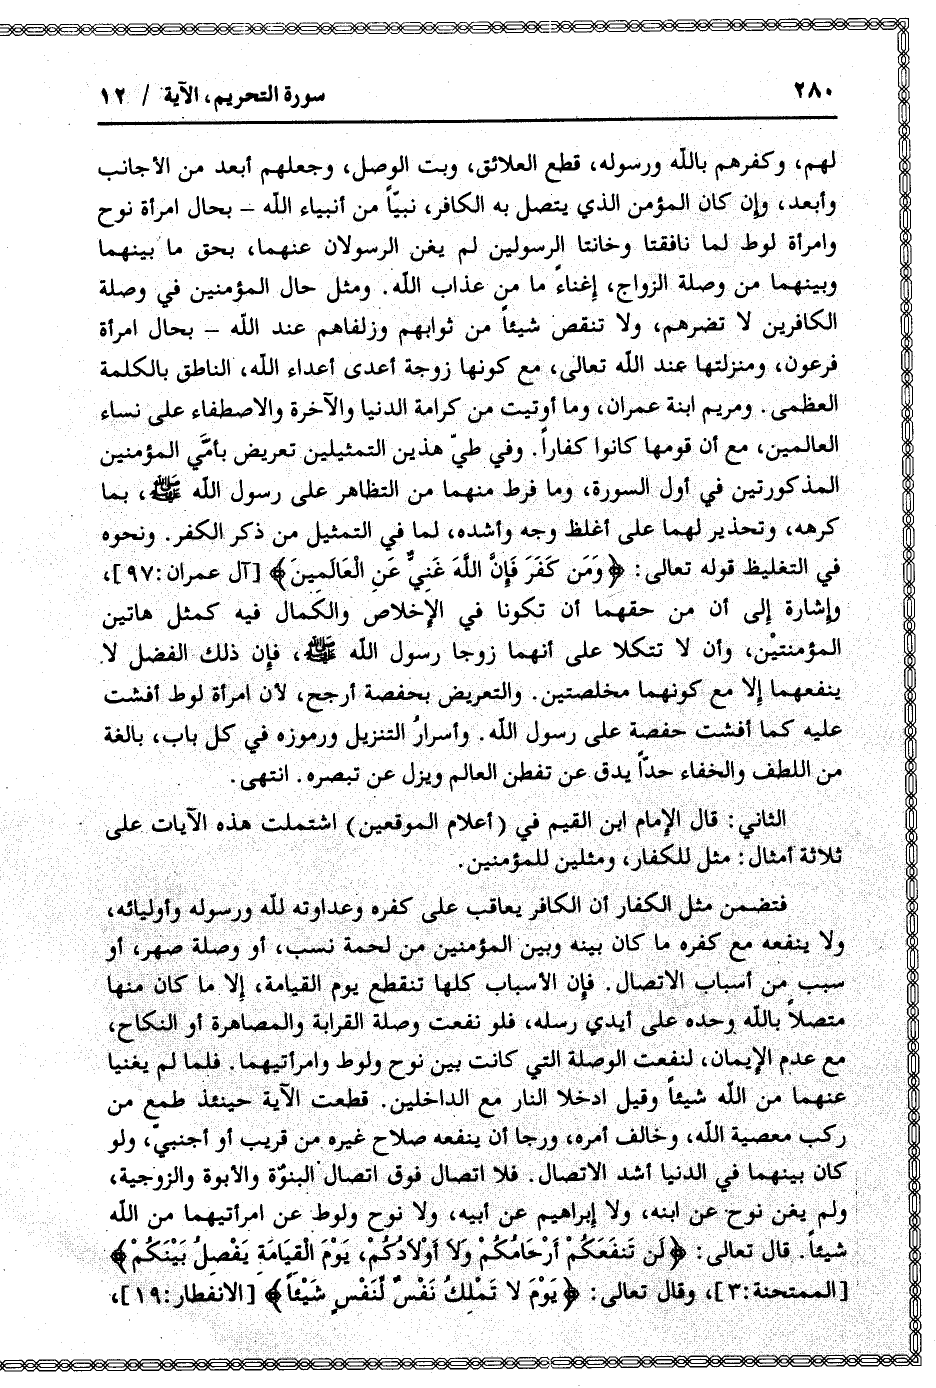 ٢٨٠
سورة التحريم، الآية / ١٢
لهم، وكفرهم بالله ورسوله، قطع العلائق، وبت الوصل، وجعلهم أبعد من الأجانب
وأبعد، وإن كان المؤمن الذي يتصل به الكافر، نبيّاً من أنبياء الله – بحال امرأة نوح
وامرأة لوط لما نافقتا وخانتا الرسولين لم يغن الرسولان عنهما، بحق ما بينهما
وبينهما من وصلة الزواج، إغناءً ما من عذاب الله. ومثل حال المؤمنين في وصلة
الكافرين لا تضرهم، ولا تنقص شيئاً من ثوابهم وزلفاهم عند الله – بحال امرأة
فرعون، ومنزلتها عند الله تعالى، مع كونها زوجة أعدى أعداء الله، الناطق بالكلمة
العظمى. ومريم ابنة عمران، وما أوتيت من كرامة الدنيا والآخرة والاصطفاء على نساء
العالمين، مع أن قومها كانوا كفاراً. وفي طيّ هذين التمثيلين تعريض بأمَّي المؤمنين
المذكورتين في أول السورة، وما فرط منهما من التظاهر على رسول الله ﷺ، بما
كرهه، وتحذير لهما على أغلظ وجه وأشده، لما في التمثيل من ذكر الكفر. ونحوه
في التغليظ قوله تعالى: ﴿وَمَن كَفَرَ فَإِنَّ اللَّهَ غَنِيٌّ عَنِ الْعَالَمِينَ﴾ [آل عمران:٩٧]،
وإشارة إلى أن من حقهما أن تكونا في الإخلاص والكمال فيه كمثل هاتين
المؤمنتيْن، وأن لا تتكلا على أنهما زوجا رسول الله ﷺ، فإن ذلك الفضل لا
ينفعهما إلا مع كونهما مخلصتين. والتعريض بحفصة أرجح، لأن امرأة لوط أفشت
عليه كما أفشت حفصة على رسول الله. وأسرارُ التنزيل ورموزه في كل باب، بالغة
من اللطف والخفاء حدّاً يدق عن تفطن العالم ويزل عن تبصره. انتهى.
الثاني: قال الإمام ابن القيم في (أعلام الموقعين) اشتملت هذه الآيات على
ثلاثة أمثال: مثل للكفار، ومثلين للمؤمنين.
فتضمن مثل الكفار أن الكافر يعاقب على كفره وعداوته لله ورسوله وأوليائه،
ولا ينفعه مع كفره ما كان بينه وبين المؤمنين من لحمة نسب، أو وصلة صهر، أو
سبب من أسباب الاتصال. فإن الأسباب كلها تنقطع يوم القيامة، إلا ما كان منها
متصلاً بالله وحده على أيدي رسله، فلو نفعت وصلة القرابة والمصاهرة أو النكاح،
مع عدم الإيمان، لنفعت الوصلة التي كانت بين نوح ولوط وامرأتيهما. فلما لم يغنيا
عنهما من الله شيئاً وقيل ادخلا النار مع الداخلين. قطعت الآية حينئذ طمع من
ركب معصية الله، وخالف أمره، ورجا أن ينفعه صلاح غيره من قريب أو أجنبيّ، ولو
كان بينهما في الدنيا أشد الاتصال. فلا اتصال فوق اتصال البنوّة والأبوة والزوجية،
ولم يغن نوح عن ابنه، ولا إبراهيم عن أبيه، ولا نوح ولوط عن امرأتيهما من الله
شيئاً. قال تعالى: ﴿لَن تَنفَعَكُمْ أَرْحَامُكُمْ وَلَا أَوْلَادُكُمْ، يَوْمَ الْقِيَامَةِ يَفْصِلُ بَيْنَكُمْ﴾
[الممتحنة:٣]، وقال تعالى: ﴿يَوْمَ لَا تَمْلِكُ نَفْسٌ لِّنَفْسٍ شَيْئاً﴾ [الانفطار:١٩]،